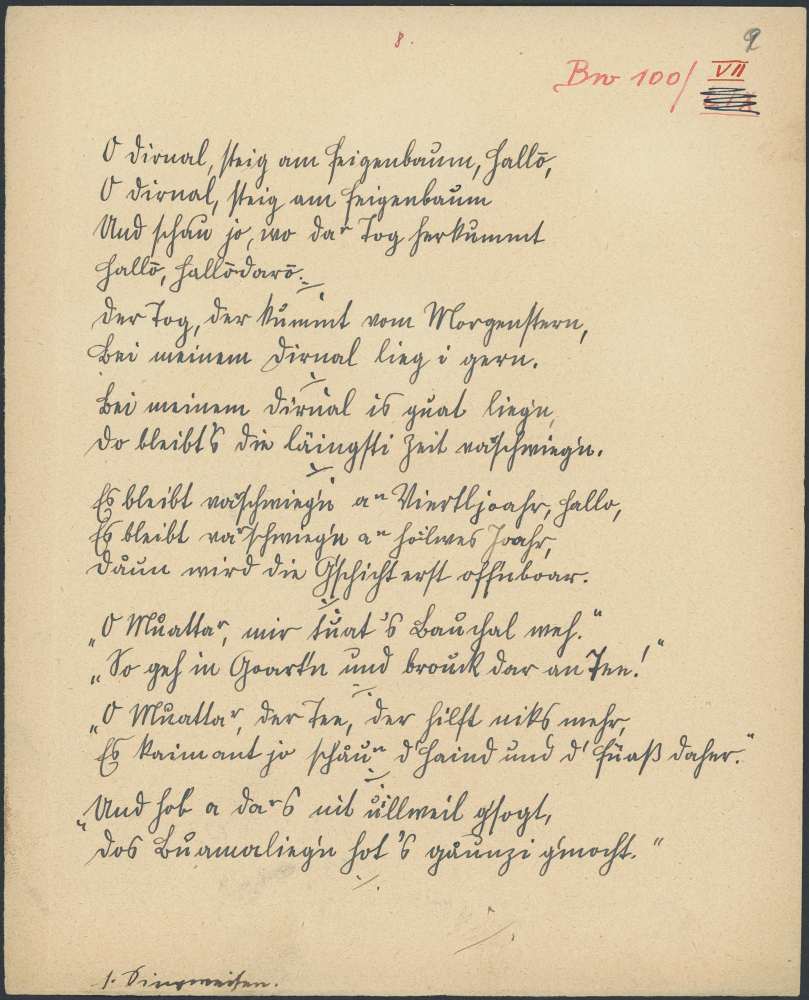 8.
9
Bw 100/ VII
O Dirnal, steig am Feigenbaum, hallō,
O Dirnal, steig am Feigenbaum
Und schau jo, wo daʳ Tog herkummt
Hallō, hallōdarō.
Der Tog, der kummt vom Morgenstern,
Bei meinem Dirnal lieg i gern.
Bei meinem Dirnal is guat lieg'n,
Do bleibt's die läingsti Zeit vaʳschwieg'n.
Es bleibt vaʳschwieg'n aⁿ Viertljoahr, hallo,
Es bleibt vaʳschwieg'n aⁿ hoilwes Joahr,
Dåun wird die Gschicht erst off'nboar.
„O Muattaʳ, mir tuat's Bauchal weh."
„So geh in Goart'n und brouck dar an Tee!"
„O Muattaʳ, der Tee, der hilft niks mehr,
Es kaimant jo schåuⁿ d'Haind und d' Füaß daher."
„Und hob a daʳs nit ullweil g'sogt,
Dos Buamalieg'n hot's gåunzi g'mocht."
s. Singweisen.